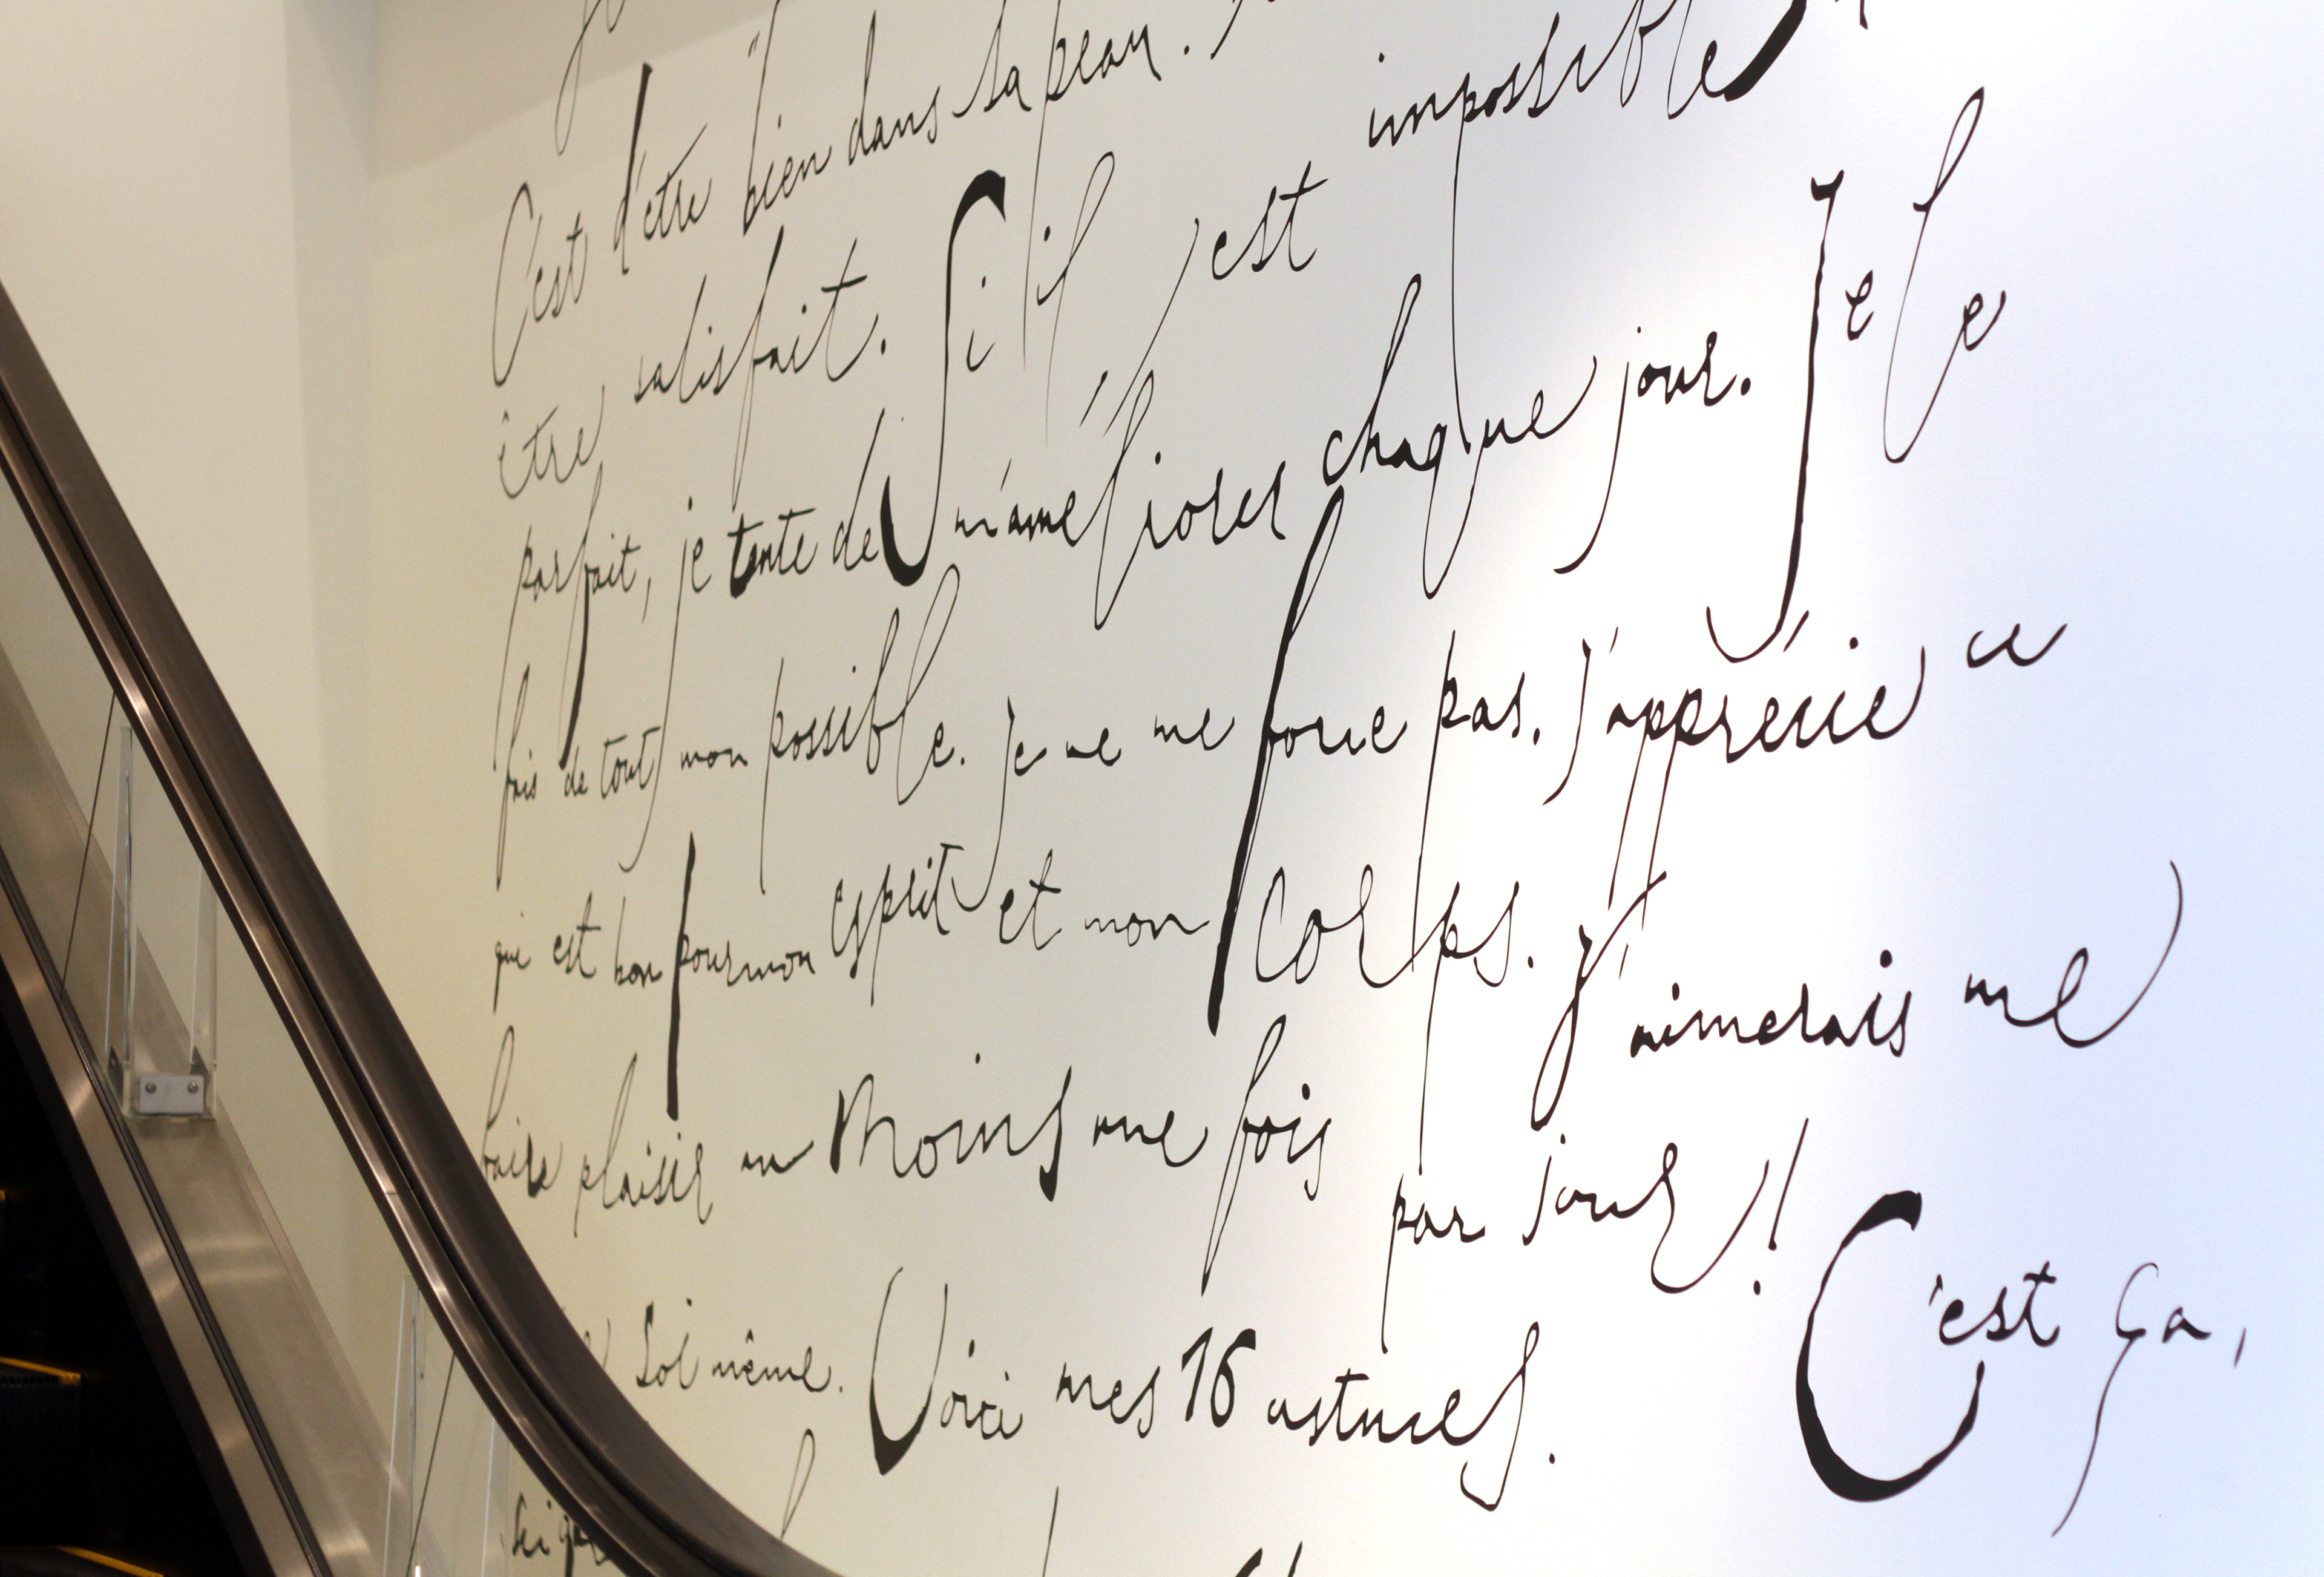 C'est d'être bien dans sa peau. impossible
être satisfait. S'il est
parfait, je tente de m'améliorer chaque jour. Je le
fais de tout mon possible. Je ne me force pas. J'apprécie ce
qui est bon pour mon esprit et mon corps. J'aimerais me
faire plaisir au moins une fois par jour! C'est ça,
soi même. Voici mes 16 astuces.